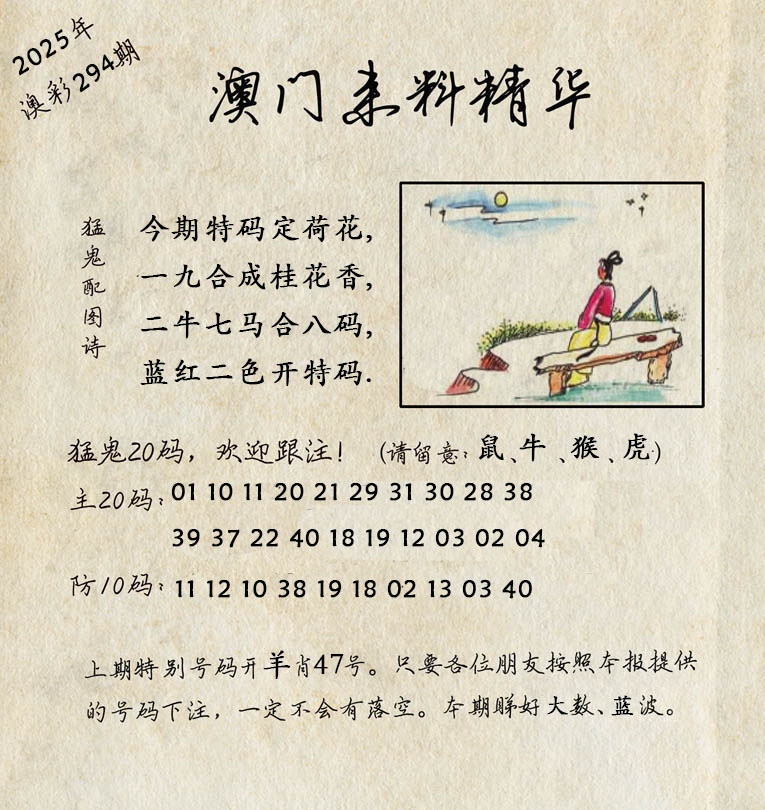 2025年
澳彩294期
澳门来料精华
猛鬼配图诗
今期特码定荷花,
一九合成桂花香,
二牛七马合八码,
蓝红二色开特码.
猛鬼20码，欢迎跟注！ (请留意：鼠、牛、猴、虎)
主20码：01 10 11 20 21 29 31 30 28 38
39 37 22 40 18 19 12 03 02 04
防10码：11 12 10 38 19 18 02 13 03 40
上期特别号码开羊肖47号。只要各位朋友按照本报提供
的号码下注，一定不会有落空。本期睇好大数、蓝波。